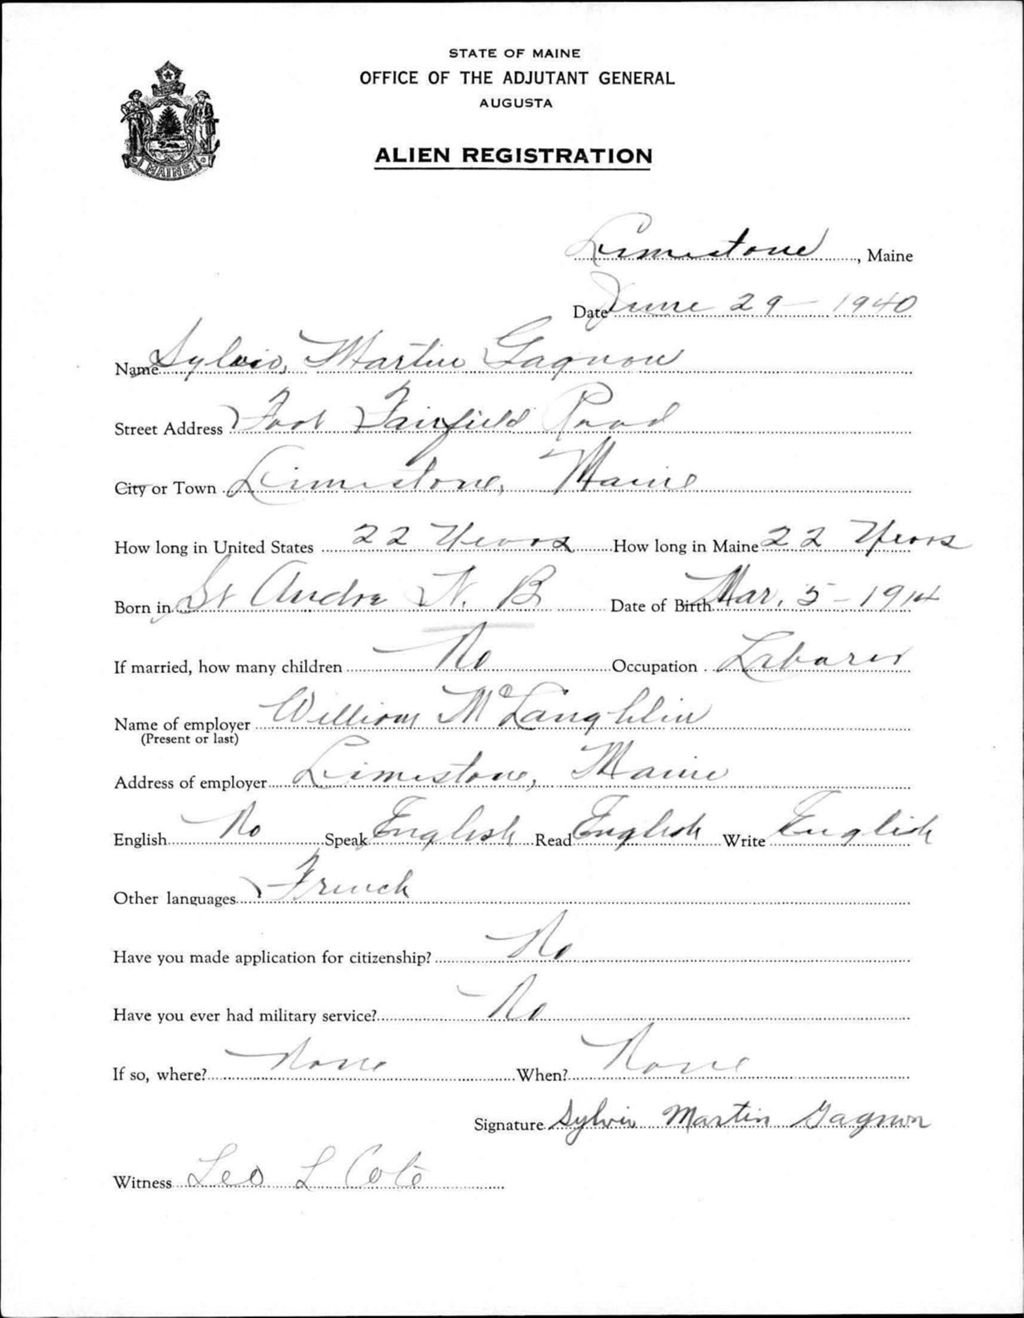 STATE OF MAINE
OFFICE OF THE ADJUTANT GENERAL
AUGUSTA
ALIEN REGISTRATION
MAINE
Limestone, Maine
Date June 29 - 1940
Name Sylvio, Martin Gagnon
Street Address Foot Fairfield Road
City or Town Limestone, Maine
How long in United States 22 Years How long in Maine 22 Years
Born in St Andre N. B Date of Birth Mar. 5 - 1914
If married, how many children No Occupation Laborer
Name of employer William McLaughlin
(Present or last)
Address of employer Limestone, Maine
English No Speak English Read English Write English
Other languages French
Have you made application for citizenship? No
Have you ever had military service? No
If so, where? None When? None
Signature Sylvio Martin Gagnon
Witness Leo L Cote